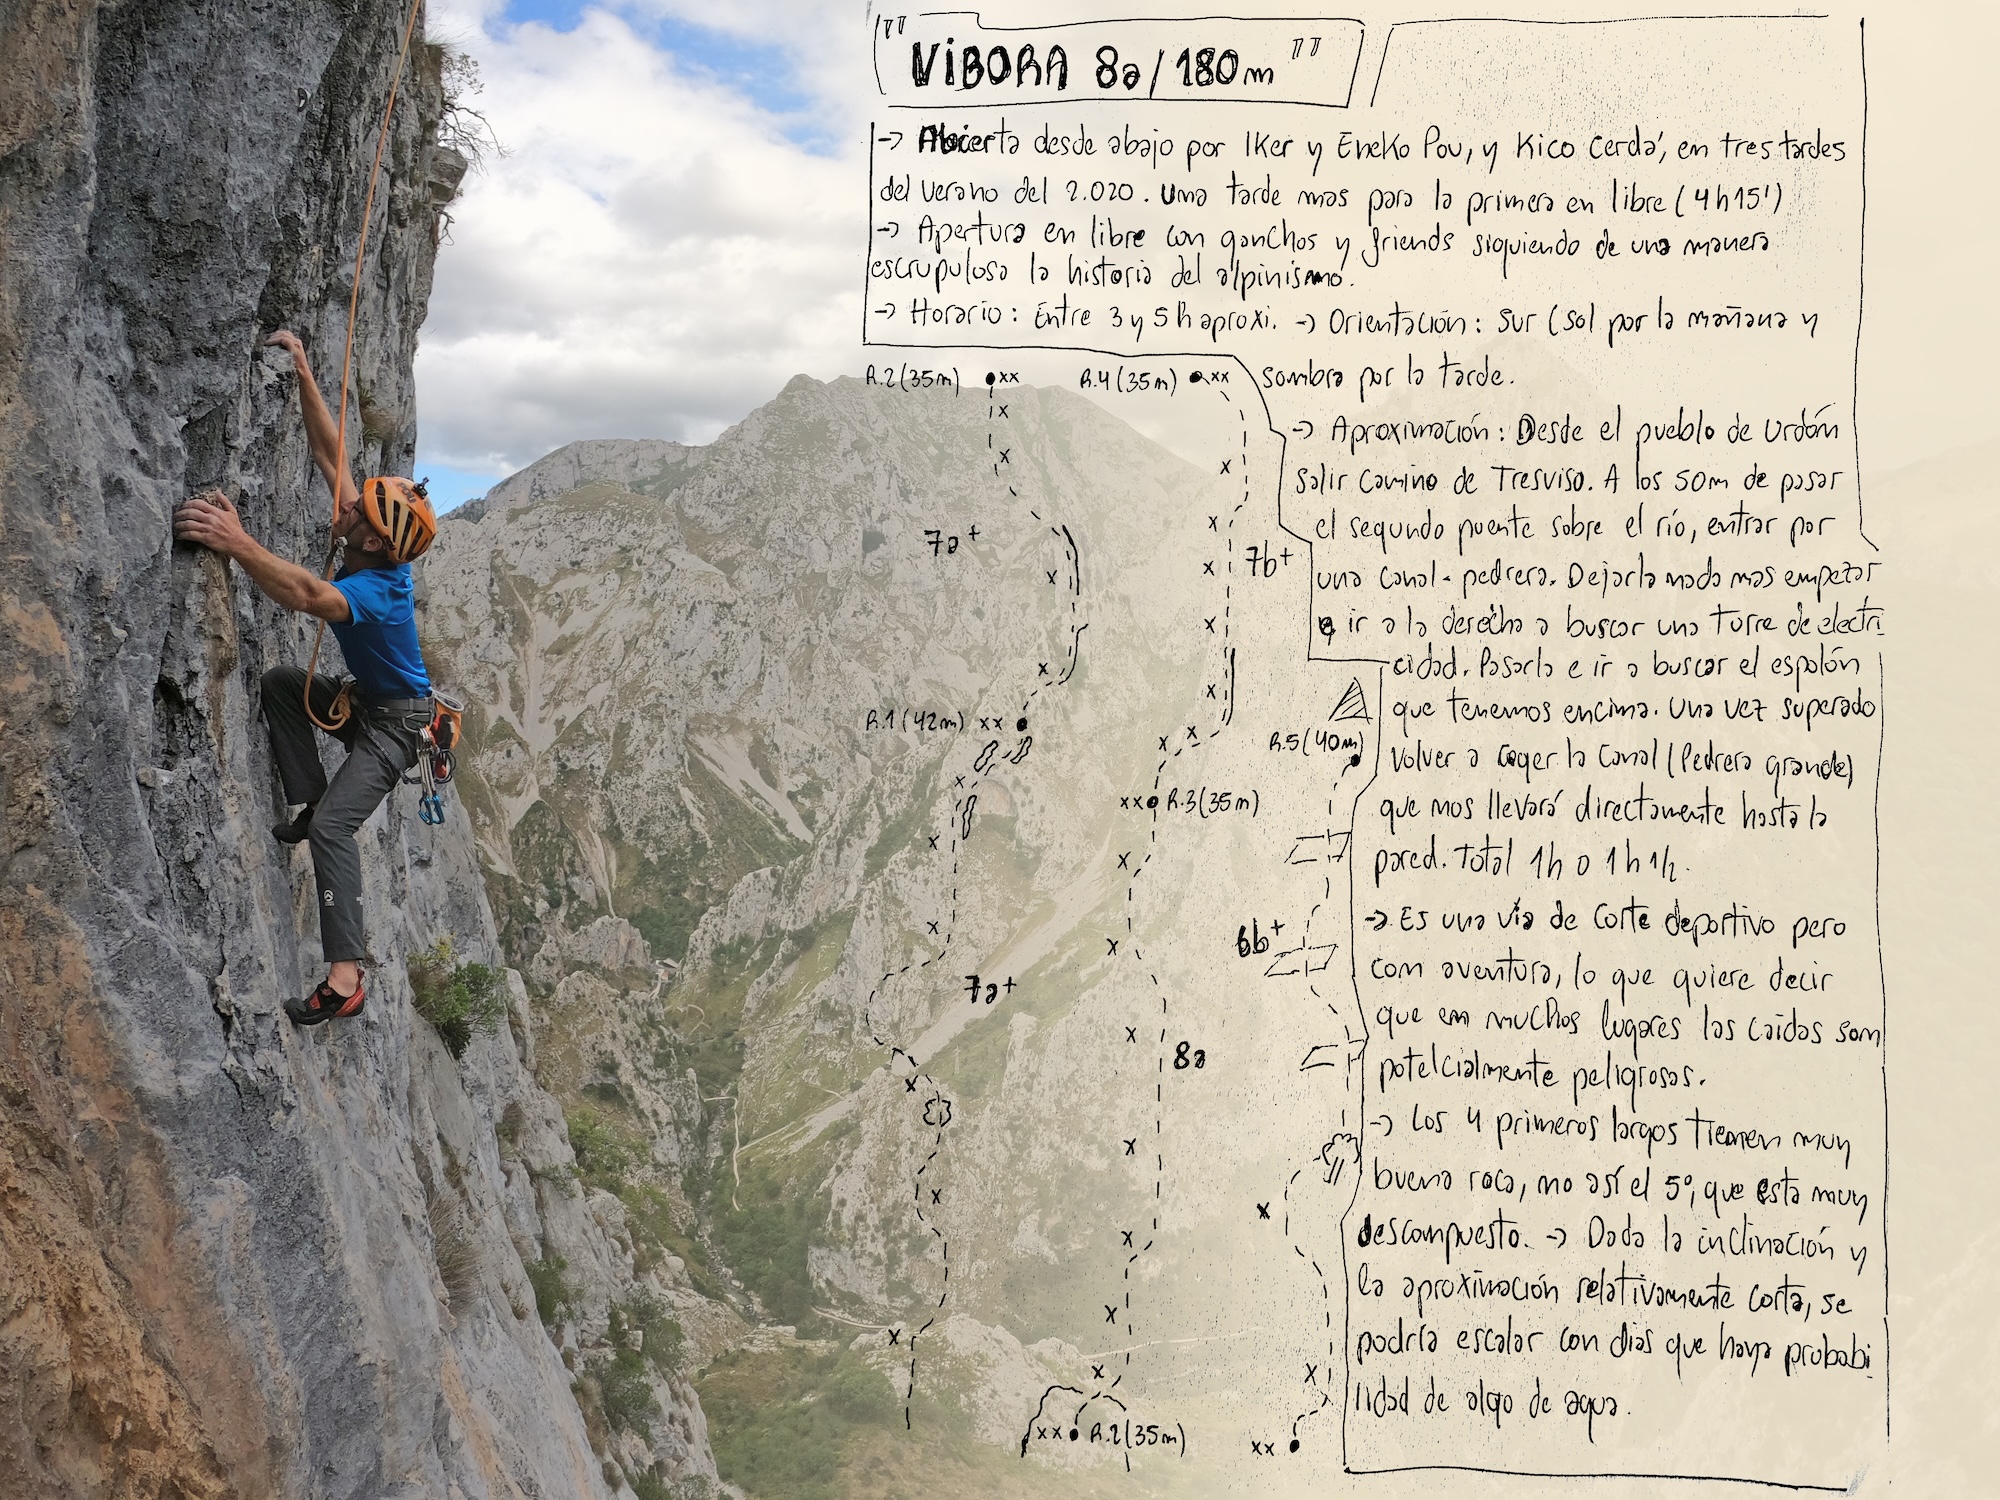 "VÍBORA 8a/180m"
-> Abierta desde abajo por Iker y Eneko Pou, y Kico Cerdá, en tres tardes
del verano del 2.020. Una tarde mas para la primera en libre (4h15')
-> Apertura en libre con ganchos y friends siguiendo de una manera
escrupulosa la historia del alpinismo.
-> Horario: Entre 3 y 5h aproxi. -> Orientación: Sur (Sol por la mañana y
sombra por la tarde.
-> Aproximación: Desde el pueblo de Urdón
Salir Camino de Tresviso. A los 50m de pasar
el segundo puente sobre el río, entrar por
una canal-pedrera. Dejarla nada mas empezar
e ir a la derecha a buscar una torre de electri
cidad. Pasarla e ir a buscar el espolón
que tenemos encima. Una vez superado
volver a coger la Canal (Pedrera grande)
que nos llevará directamente hasta la
pared. Total 1h o 1h 1/2.
-> Es una vía de corte deportivo pero
con aventura, lo que quiere decir
que en muchos lugares las caidas son
potelcialmente peligrosas.
-> Los 4 primeros largos tienen muy
buena roca, no así el 5º, que esta muy
descompuesto. -> Dada la inclinación y
la aproximación relativamente corta, se
podría escalar con dias que haya probabi
lidad de algo de agua.
R.2 (35m) xx
7a+
R.1 (42m) xx
7a+
R.4 (35m) xx
7b+
xx R.3 (35m)
8a
xx R.2 (35m)
R.5 (40m)
6b+
xx